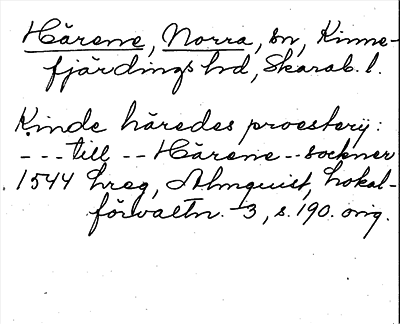 Härene, Norra, sn, Kinne-
fjärdings hd, Skarab. l.
Kinde häredes proesterij:
--- till -- Härene -- sockner
1544 hreg, Almquist, Lokal-
förvaltn. 3, s. 190. orig.